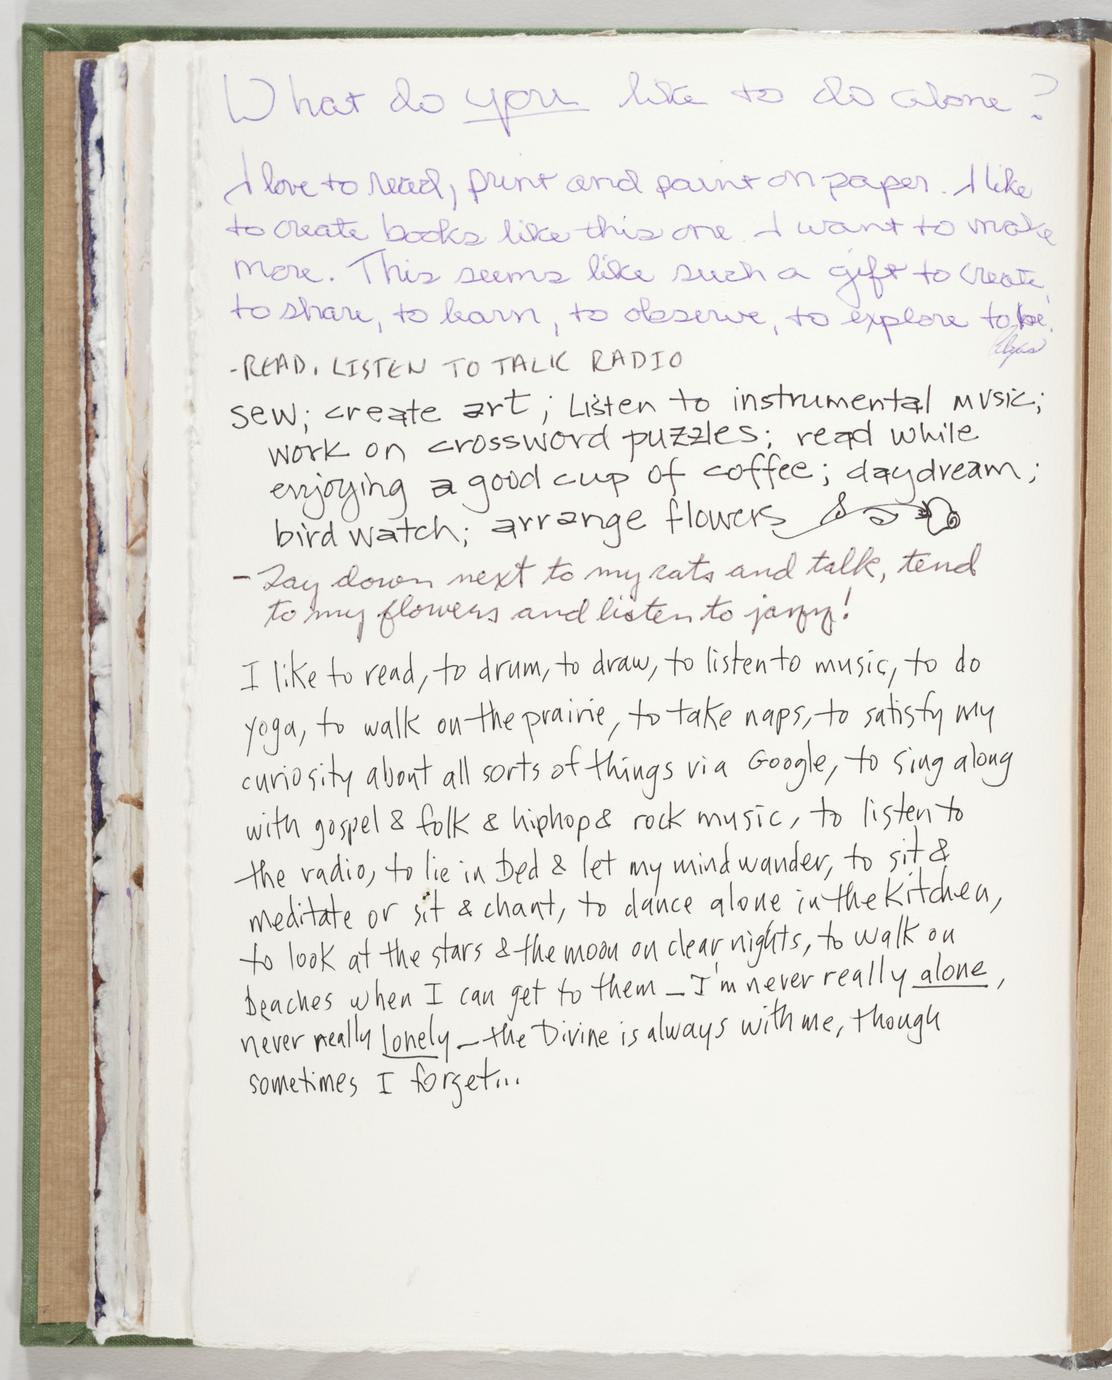 What do you like to do alone?
I love to read, print and paint on paper. I like
to create books like this one. I want to make
more. This seems like such a gift to create,
to share, to learn, to observe, to explore to be.
-READ. LISTEN TO TALK RADIO
sew; create art; Listen to instrumental music;
work on crossword puzzles; read while
enjoying a good cup of coffee; daydream;
bird watch; arrange flowers
- Lay down next to my cats and talk, tend
to my flowers and listen to jazzy!
I like to read, to drum, to draw, to listen to music, to do
yoga, to walk on the prairie, to take naps, to satisfy my
curiosity about all sorts of things via Google, to sing along
with gospel & folk & hiphop & rock music, to listen to
the radio, to lie in bed & let my mind wander, to sit &
meditate or sit & chant, to dance alone in the kitchen,
to look at the stars & the moon on clear nights, to walk on
beaches when I can get to them — I'm never really alone,
never really lonely — the Divine is always with me, though
sometimes I forget...